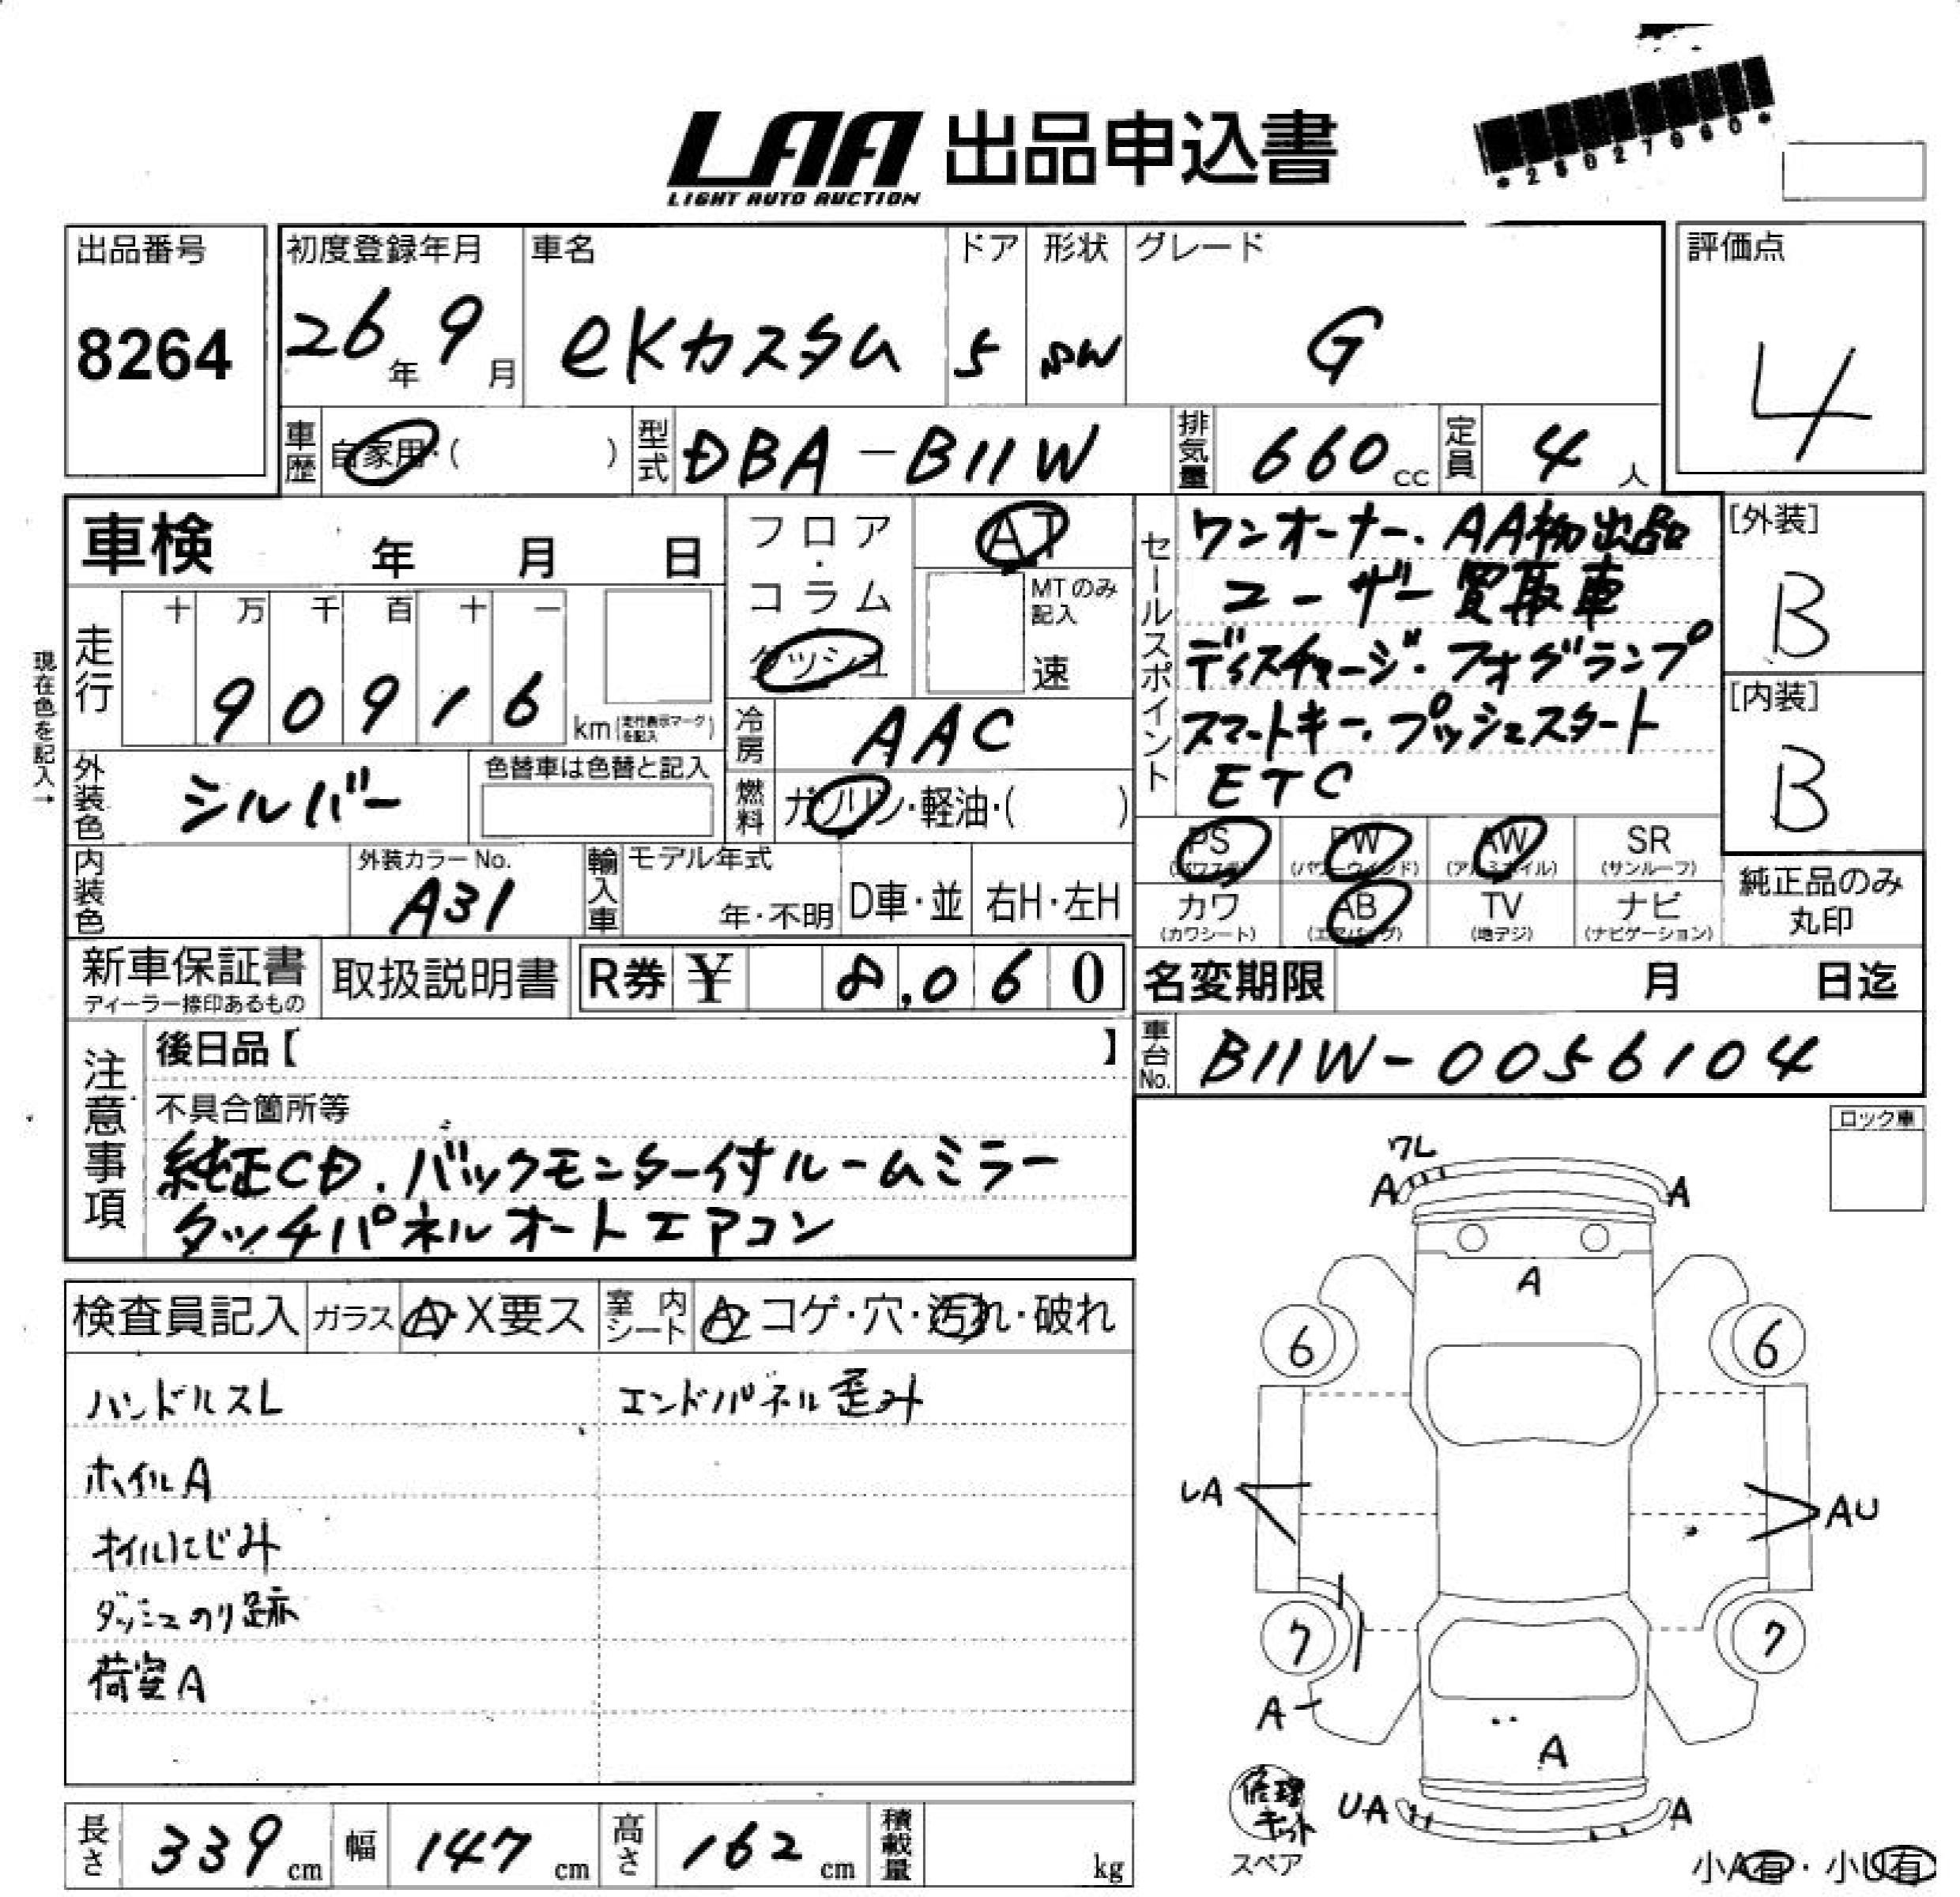 LAA 出品申込書
LIGHT AUTO AUCTION
出品番号 8264
初度登録年月 26年 9月
車名 eKカスタム
ドア 5
形状 SW
グレード G
評価点 4
車歴 自家用・( )
型式 DBA-B11W
排気量 660cc
定員 4人
車検 年 月 日
フロア・コラム ダッシュ
AT
MTのみ記入 速
現在色を記入→
走行 十 万 千 百 十 一
90916 km(走行表示マークを記入)
冷房 AAC
燃料 ガソリン・軽油・( )
外装色 シルバー
色替車は色替と記入
内装色
外装カラーNo. A31
輸入車 モデル年式 年・不明 D車・並 右H・左H
セールスポイント
ワンオーナー、AA初出品
ユーザー買取車
ディスチャージ・フォグランプ
スマートキー、プッシュスタート
ETC
[外装] B
[内装] B
PS(パワステ) PW(パワーウインド) AW(アルミホイル) SR(サンルーフ)
カワ(カワシート) AB(エアバッグ) TV(地デジ) ナビ(ナビゲーション)
純正品のみ丸印
新車保証書 ディーラー捺印あるもの
取扱説明書
R券 ¥ 8,060
名変期限 月 日迄
車台No. B11W-0056104
注意事項
後日品【 】
不具合箇所等
純正CD、バックモニター付ルームミラー
タッチパネルオートエアコン
ロック車
検査員記入 ガラス A・X要ス 室内シート A・コゲ・穴・汚れ・破れ
ハンドルスレ エンドパネル歪み
ホイルA
オイルにじみ
ダッシュのり跡
荷室A
ワレ
A A
A
6 6
UA AU
7 7
A
A
UA A
修理キット
スペア
小A有・小U有
長さ 339cm
幅 147cm
高さ 162cm
積載量 kg